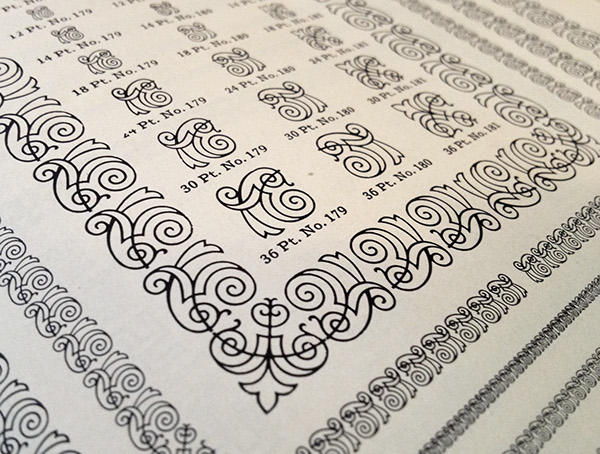 14 Pt. No. 179
18 Pt. No. 179
18 Pt. No. 180
24 Pt. No. 179
24 Pt. No. 180
24 Pt. No. 181
30 Pt. No. 179
30 Pt. No. 180
30 Pt. No. 181
36 Pt. No. 179
36 Pt. No. 180
36 Pt. No. 181